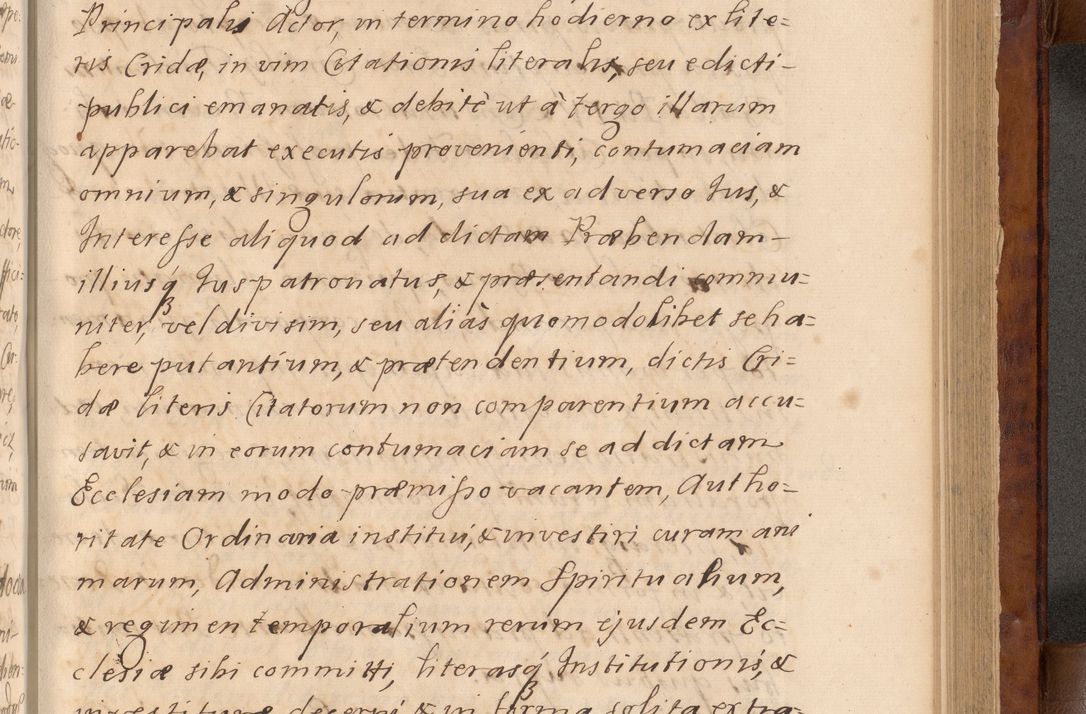 Principalis Actor, in termino hodierno ex lite=
ris Cridæ, in vim Citationis literalis, seu edicti-
publici emanatis, & debitè ut à tergo illarum
apparebat executis provenienti, contumaciam
omnium, & singulorum, sua ex adverso Jus, &
Interesse aliquod ad dictam Præbendam-
illiusq́ Juspatronatus, & præsentandi commu=
niter, vel divisim, seu aliàs quomodolibet se ha=
bere putantium, & prætendentium, dictis Cri=
dæ literis Citatorum non comparentium accu=
savit, & in eorum contumaciam se ad dictam
Ecclesiam modo præmisso vacantem, Autho=
ritate Ordinaria institui, & investiri curam ani
marum, Administrationem Spiritualium,
& regimen temporalium rerum ejusdem Ec=
clesiæ sibi committi, literasq́ Institutionis, &
investituræ decerni & in forma solita extra=